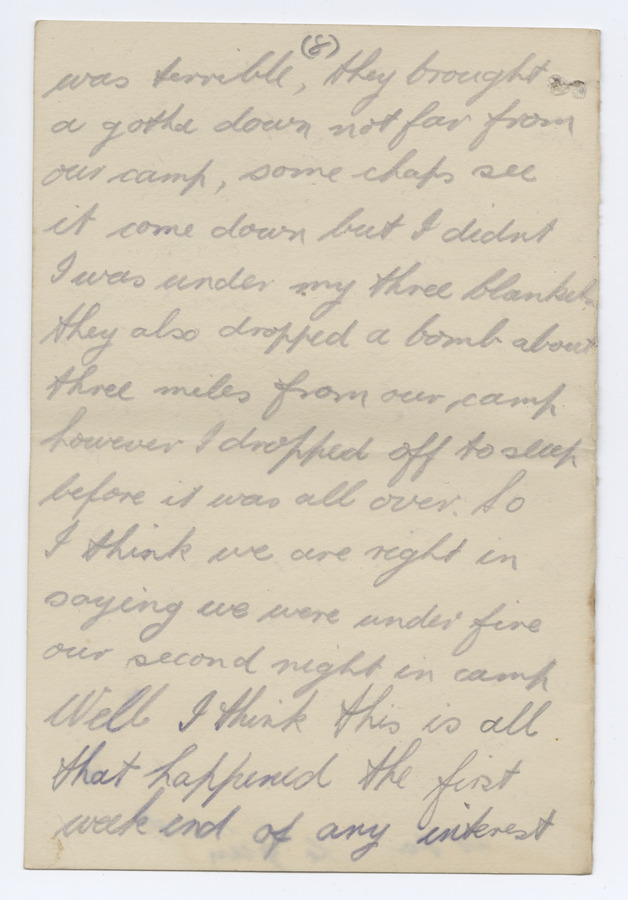 (8)
was terrible, they brought
a gotha down not far from
our camp, some chaps see
it come down but I didnt
I was under my three blankets
they also dropped a bomb about
three miles from our camp
however I dropped off to sleep
before it was all over. So
I think we are right in
saying we were under fire
our second night in camp
Well I think this is all
that happened the first
week end of any interest